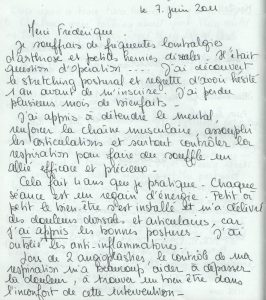 le 7. juin 2011
Merci Frédérique.
Je souffrais de fréquentes lombalgies
d'arthrose et petites hernies discales. Il était
question d'opération .... J'ai découvert
le stretching postural et regrette d'avoir hésité
1 an avant de m'inscrire. J'ai perdu
plusieurs mois de bienfaits.
J'ai appris à détendre le mental,
renforcer la chaîne musculaire, assouplir
les articulations et surtout contrôler la
respiration pour faire du souffle un
allié efficace et précieux.
Cela fait 4 ans que je pratique. Chaque
séance est un regain d'énergie. Petit à
petit le bien-être s'est installé et m'a délivré
des douleurs dorsales et articulaires, car
j'ai appris les bonnes postures. J'ai
oublié les anti-inflammatoires.
Lors de 2 angioplasties, le contrôle de ma
respiration m'a beaucoup aidée à dépasser
la douleur, à trouver un bien être dans
l'inconfort de cette intervention.